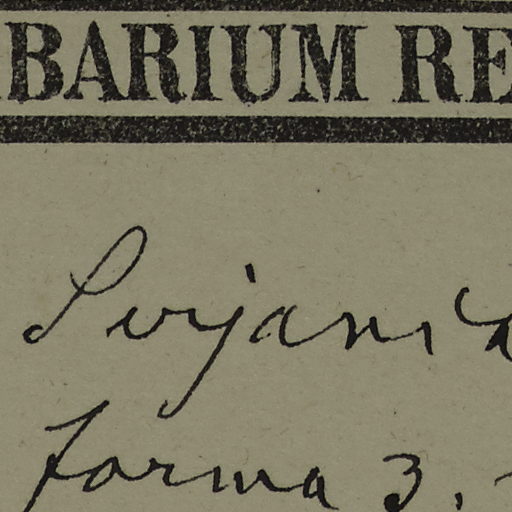 BARIUM RE
Serjania
forma 3.